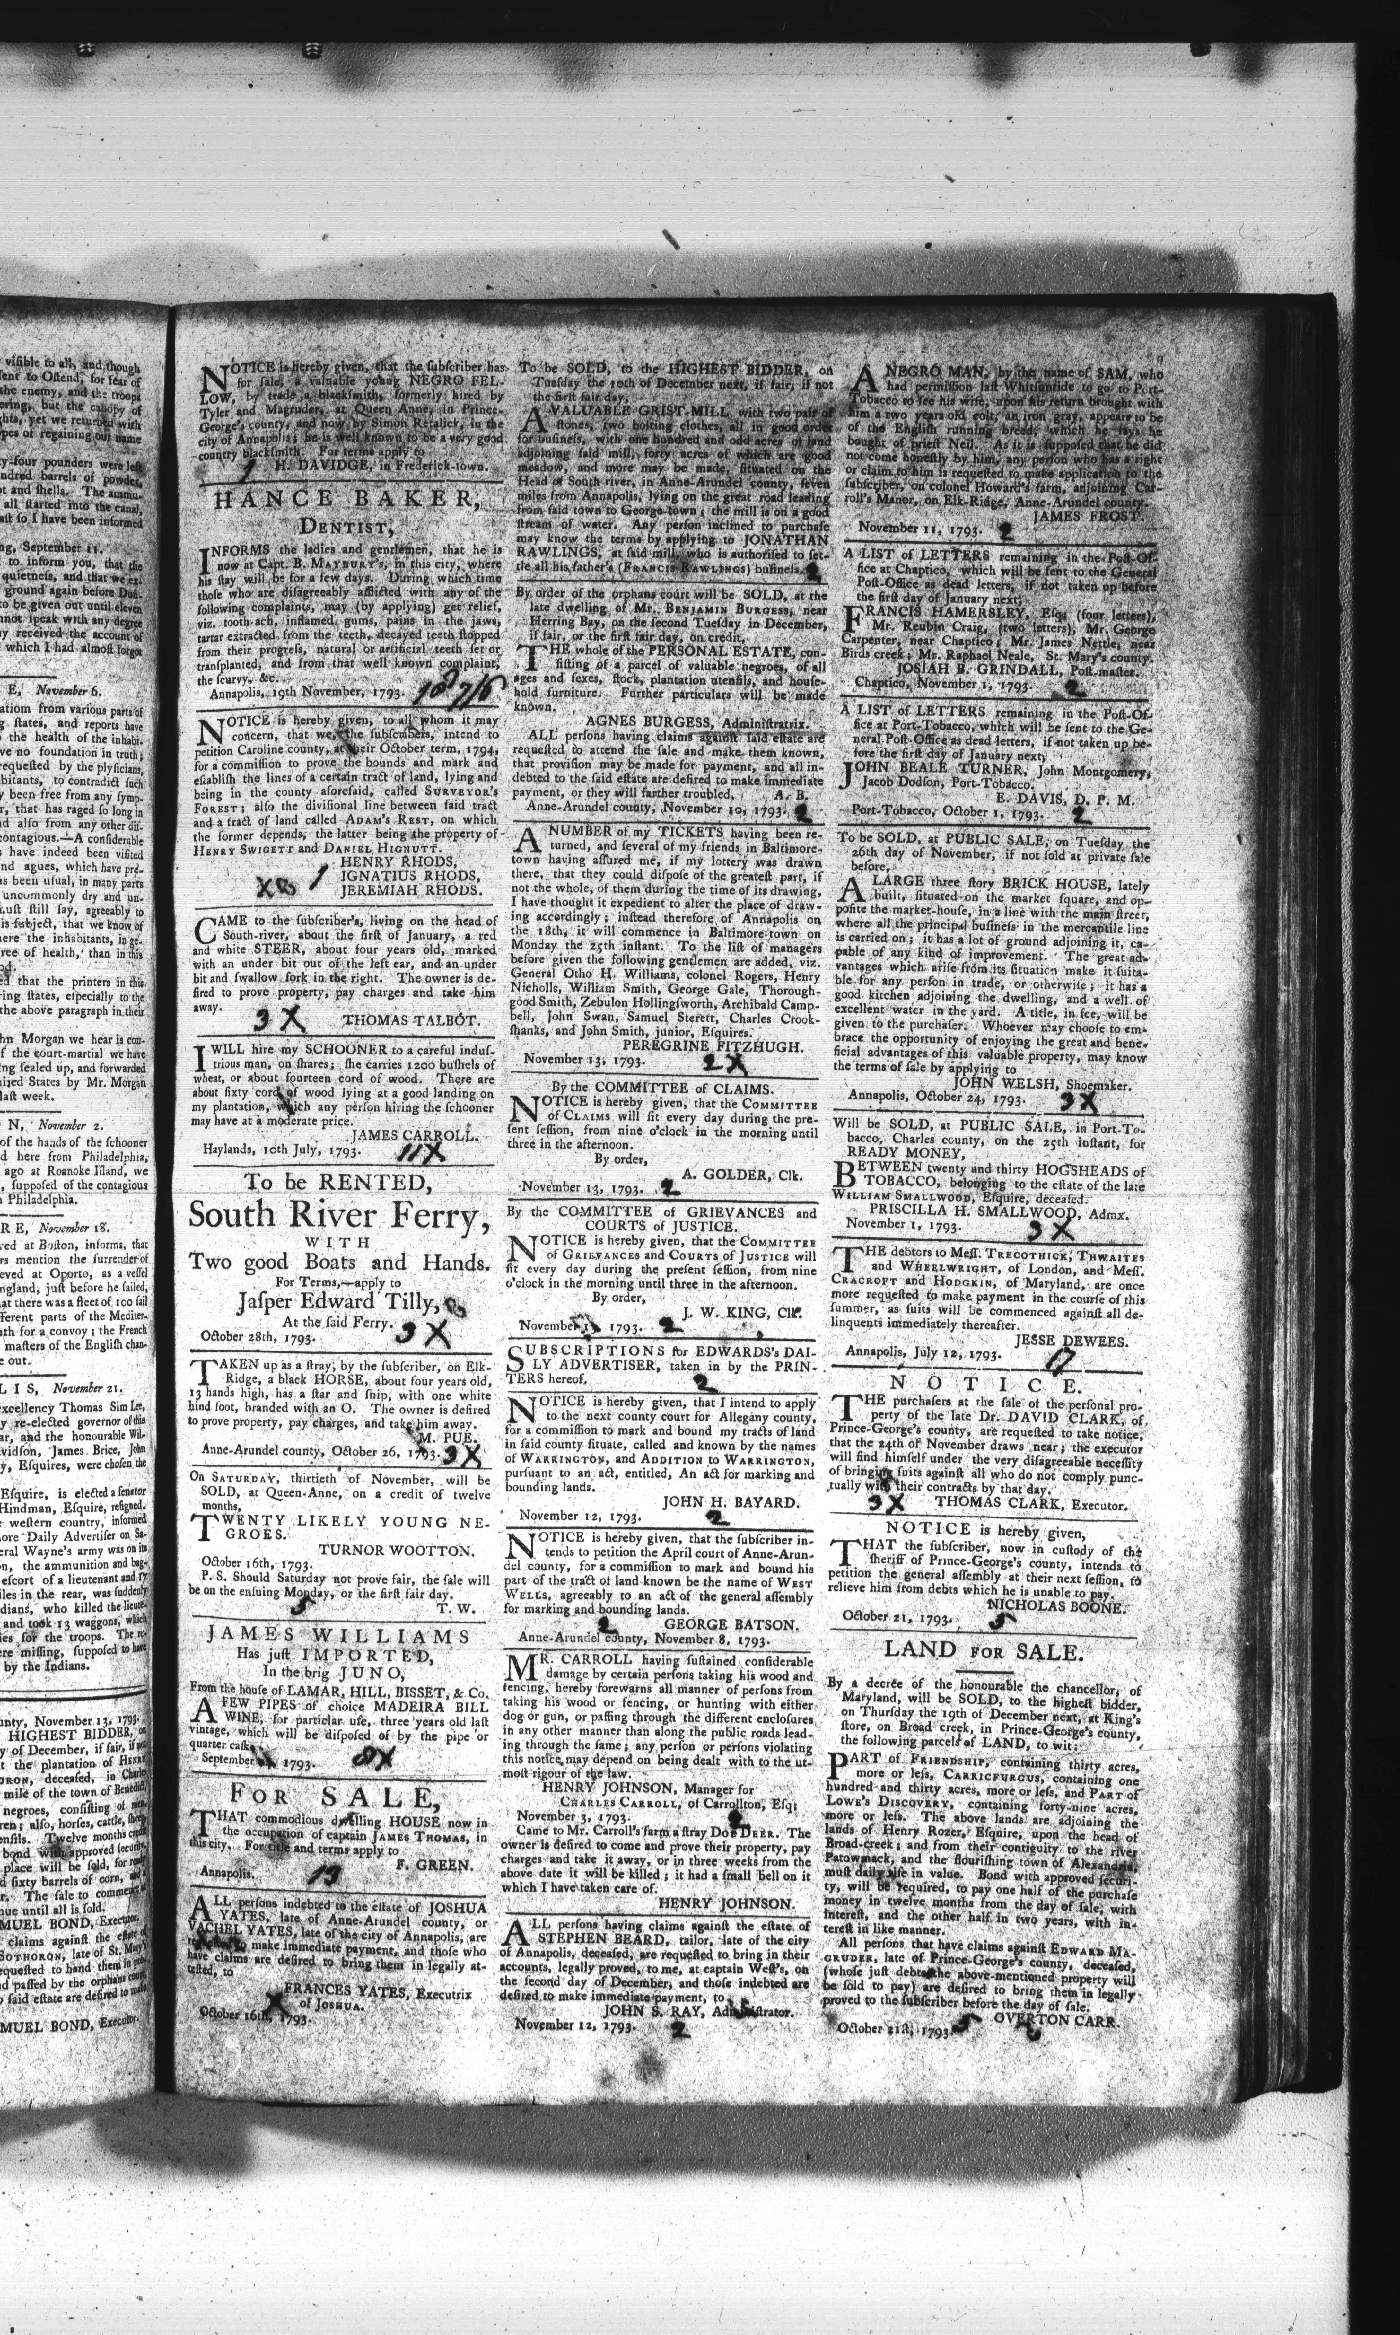 visible to all, and though
ent to Ostend, for fear of
the enemy, and the troops
ering, but the canopy of
ghts, yet we returned with
ypes of regaining our name
ty-four pounders were left
ndred barrels of powder,
ot and shells. The ammu-
all started into the canal,
ast so I have been informed
ng, September 11.
to inform you, that the
quietness, and that we ex-
ground again before Dun-
to be given out until eleven
nnot speak with any degree
y received the account of
which I had almost forgot
E, November 6.
ation from various parts of
g states, and reports have
the health of the inhabi-
ve no foundation in truth;
requested by the physicians,
bitants, to contradict such
y been free from any symp-
r, that has raged so long in
nd also from any other dis-
contagious.—A considerable
s have indeed been visited
nd agues, which have pre-
s been usual, in many parts
uncommonly dry and un-
ust still say, agreeably to
is subject, that we know of
ere the inhabitants, in ge-
ree of health, than in this
od.
ed that the printers in this
ring states, especially to the
the above paragraph in their
hn Morgan we hear is con-
f the court-martial we have
ng sealed up, and forwarded
nited States by Mr. Morgan
last week.
N, November 2.
of the hands of the schooner
d here from Philadelphia,
ago at Roanoke Island, we
, supposed of the contagious
Philadelphia.
RE, November 18.
ved at Boston, informs, that
rs mention the surrender of
eved at Oporto, as a vessel
ngland; just before he sailed,
at there was a fleet of 100 sail
fferent parts of the Mediter-
ith for a convoy; the French
masters of the English chan-
e out.
LIS, November 21.
xcellency Thomas Sim Lee,
y re-elected governor of this
ar, and the honourable Wil-
vidson, James Brice, John
y, Esquires, were chosen the
Esquire, is elected a senator
Hindman, Esquire, resigned.
e western country, informed
ore Daily Advertiser on Sa-
eral Wayne's army was on its
on, the ammunition and bag-
escort of a lieutenant and
iles in the rear, was suddenly
dians, who killed the lieute-
and took 13 waggons, which
ies for the troops. The
re missing, supposed to have
by the Indians.
unty, November 13, 1793.
HIGHEST BIDDER, on
y of December, if fair, if
t the plantation of
ORON, deceased, in Charles
mile of the town of Benedict,
negroes, consisting of men,
ren; also, horses, cattle, sheep
nsils. Twelve months credit
bond with approved security,
place will be sold, for ready
d sixty barrels of corn, and
r. The sale to commence at
nue until all is sold.
MUEL BOND, Executor.
claims against the estate of
SOTHORON, late of St. Mary's
equested to hand them in
d passed by the orphans court,
o said estate are desired to make
MUEL BOND, Executor.
NOTICE is hereby given, that the subscriber has
for sale, a valuable young NEGRO FEL-
LOW, by trade a blacksmith, formerly hired by
Tyler and Magruder, at Queen Anne, in Prince-
George's county, and now by Simon Retalick, in the
city of Annapolis; he is well known to be a very good
country blacksmith. For terms apply to
1 H. DAVIDGE, in Frederick-town.
HANCE BAKER,
DENTIST,
INFORMS the ladies and gentlemen, that he is
now at Capt. B. MAYBURY's, in this city, where
his stay will be for a few days. During which time
those who are disagreeably afflicted with any of the
following complaints, may (by applying) get relief,
viz. tooth-ach, inflamed gums, pains in the jaws,
tartar extracted from the teeth, decayed teeth stopped
from their progress, natural or artificial teeth set or
transplanted, and from that well known complaint,
the scurvy, &c.
Annapolis, 19th November, 1793.
NOTICE is hereby given, to all whom it may
concern, that we, the subscribers, intend to
petition Caroline county, at their October term, 1794,
for a commission to prove the bounds and mark and
establish the lines of a certain tract of land, lying and
being in the county aforesaid, called SURVEYOR'S
FOREST; also the divisional line between said tract
and a tract of land called ADAM'S REST, on which
the former depends, the latter being the property of
HENRY SWIGETT and DANIEL HIGNUTT.
HENRY RHODS,
IGNATIUS RHODS,
JEREMIAH RHODS.
CAME to the subscriber's, living on the head of
South-river, about the first of January, a red
and white STEER, about four years old, marked
with an under bit out of the left ear, and an under
bit and swallow fork in the right. The owner is de-
sired to prove property, pay charges and take him
away.
3 X THOMAS TALBOT.
I WILL hire my SCHOONER to a careful indus-
trious man, on shares; she carries 1200 bushels of
wheat, or about fourteen cord of wood. There are
about sixty cord of wood lying at a good landing on
my plantation, which any person hiring the schooner
may have at a moderate price.
JAMES CARROLL.
Haylands, 10th July, 1793. 11X
To be RENTED,
South River Ferry,
WITH
Two good Boats and Hands.
For Terms,—apply to
Jasper Edward Tilly,
At the said Ferry.
October 28th, 1793. 3 X
TAKEN up as a stray, by the subscriber, on Elk-
Ridge, a black HORSE, about four years old,
13 hands high, has a star and snip, with one white
hind foot, branded with an O. The owner is desired
to prove property, pay charges, and take him away.
M. PUE.
Anne-Arundel county, October 26, 1793. 3 X
On SATURDAY, thirtieth of November, will be
SOLD, at Queen-Anne, on a credit of twelve
months,
TWENTY LIKELY YOUNG NE-
GROES.
TURNOR WOOTTON.
October 16th, 1793.
P. S. Should Saturday not prove fair, the sale will
be on the ensuing Monday, or the first fair day.
5 T. W.
JAMES WILLIAMS
Has just IMPORTED,
In the brig JUNO,
From the house of LAMAR, HILL, BISSET, & Co.
A FEW PIPES of choice MADEIRA BILL
WINE, for particlar use, three years old last
vintage, which will be disposed of by the pipe or
quarter cask.
September 1793. 8X
FOR SALE,
THAT commodious dwelling HOUSE now in
the occupation of captain JAMES THOMAS, in
this city. For title and terms apply to
F. GREEN.
Annapolis. 19
ALL persons indebted to the estate of JOSHUA
YATES, late of Anne-Arundel county, or
VACHEL YATES, late of the city of Annapolis, are
make immediate payment, and those who
have claims are desired to bring them in legally at-
tested, to
FRANCES YATES, Executrix
of JOSHUA.
October 16th, 1793. X
To be SOLD, to the HIGHEST BIDDER, on
Tuesday the 10th of December next, if fair, if not
the first fair day,
A VALUABLE GRIST-MILL with two pair of
stones, two bolting clothes, all in good order
for business, with one hundred and odd acres of land
adjoining said mill, forty acres of which are good
meadow, and more may be made, situated on the
Head of South river, in Anne-Arundel county, seven
miles from Annapolis, lying on the great road leading
from said town to George-town; the mill is on a good
stream of water. Any person inclined to purchase
may know the terms by applying to JONATHAN
RAWLINGS, at said mill, who is authorised to set-
tle all his father's (FRANCIS RAWLINGS) business. 2
By order of the orphans court will be SOLD, at the
late dwelling of Mr. BENJAMIN BURGESS, near
Herring Bay, on the second Tuesday in December,
if fair, or the first fair day, on credit,
THE whole of the PERSONAL ESTATE, con-
sisting of a parcel of valuable negroes, of all
ages and sexes, stock, plantation utensils, and house-
hold furniture. Further particulars will be made
known.
AGNES BURGESS, Administratrix.
ALL persons having claims against said estate are
requested to attend the sale and make them known,
that provision may be made for payment, and all in-
debted to the said estate are desired to make immediate
payment, or they will farther troubled. A. B.
Anne-Arundel county, November 10, 1793. 2
A NUMBER of my TICKETS having been re-
turned, and several of my friends in Baltimore-
town having assured me, if my lottery was drawn
there, that they could dispose of the greatest part, if
not the whole, of them during the time of its drawing,
I have thought it expedient to alter the place of draw-
ing accordingly; instead therefore of Annapolis on
the 18th, it will commence in Baltimore-town on
Monday the 25th instant. To the list of managers
before given the following gentlemen are added, viz.
General Otho H. Williams, colonel Rogers, Henry
Nicholls, William Smith, George Gale, Thorough-
good Smith, Zebulon Hollingsworth, Archibald Camp-
bell, John Swan, Samuel Sterett, Charles Crook-
shanks, and John Smith, junior, Esquires.
PEREGRINE FITZHUGH.
November 13, 1793. 2 X
By the COMMITTEE of CLAIMS.
NOTICE is hereby given, that the COMMITTEE
of CLAIMS will sit every day during the pre-
sent session, from nine o'clock in the morning until
three in the afternoon.
By order,
A. GOLDER, Clk.
November 13, 1793. 2
By the COMMITTEE of GRIEVANCES and
COURTS of JUSTICE.
NOTICE is hereby given, that the COMMITTEE
of GRIEVANCES and COURTS of JUSTICE will
sit every day during the present session, from nine
o'clock in the morning until three in the afternoon.
By order,
J. W. KING, Clk.
November 1793. 2
SUBSCRIPTIONS for EDWARDS's DAI-
LY ADVERTISER, taken in by the PRIN-
TERS hereof. 2
NOTICE is hereby given, that I intend to apply
to the next county court for Allegany county,
for a commission to mark and bound my tracts of land
in said county situate, called and known by the names
of WARRINGTON, and ADDITION to WARRINGTON,
pursuant to an act, entitled, An act for marking and
bounding lands.
JOHN H. BAYARD.
November 12, 1793. 2
NOTICE is hereby given, that the subscriber in-
tends to petition the April court of Anne-Arun-
del county, for a commission to mark and bound his
part of the tract of land known be the name of WEST
WELLS, agreeably to an act of the general assembly
for marking and bounding lands.
2 GEORGE BATSON.
Anne-Arundel county, November 8, 1793.
MR. CARROLL having sustained considerable
damage by certain persons taking his wood and
fencing, hereby forewarns all manner of persons from
taking his wood or fencing, or hunting with either
dog or gun, or passing through the different enclosures
in any other manner than along the public roads lead-
ing through the same; any person or persons violating
this notice may depend on being dealt with to the ut-
most rigour of the law.
HENRY JOHNSON, Manager for
CHARLES CARROLL, of Carrollton, Esq;
November 3, 1793.
Came to Mr. Carroll's farm a stray DOE DEER. The
owner is desired to come and prove their property, pay
charges and take it away, or in three weeks from the
above date it will be killed; it had a small bell on it
which I have taken care of.
HENRY JOHNSON.
ALL persons having claims against the estate of
STEPHEN BEARD, tailor, late of the city
of Annapolis, deceased, are requested to bring in their
accounts, legally proved, to me, at captain West's, on
the second day of December, and those indebted are
desired to make immediate payment, to
JOHN S. RAY, Administrator.
November 12, 1793. 2
A NEGRO MAN, by the name of SAM, who
had permission last Whitsuntide to go to Port-
Tobacco to see his wife, upon his return brought with
him a two years old colt, an iron gray, appears to be
of the English running breed, which he says he
bought of priest Neil. As it is supposed that he did
not come honestly by him, any person who has a right
or claim to him is requested to make application to the
subscriber, on colonel Howard's farm, adjoining Car-
roll's Manor, on Elk-Ridge, Anne-Arundel county.
JAMES FROST.
November 11, 1793. 2
A LIST of LETTERS remaining in the Post-Of-
fice at Chaptico, which will be sent to the General
Post-Office as dead letters, if not taken up before
the first day of January next;
FRANCIS HAMERSLEY, Esq; (four letters),
Mr. Reubin Craig, (two letters), Mr. George
Carpenter, near Chaptico; Mr. James Nettle, near
Birds creek; Mr. Raphael Neale, St. Mary's county.
JOSIAH B. GRINDALL, Post-master.
Chaptico, November 1, 1793. 2
A LIST of LETTERS remaining in the Post-Of-
fice at Port-Tobacco, which will be sent to the Ge-
neral Post-Office as dead letters, if not taken up be-
fore the first day of January next;
JOHN BEALE TURNER, John Montgomery,
Jacob Dodson, Port-Tobacco.
E. DAVIS, D. P. M.
Port-Tobacco, October 1, 1793. 2
To be SOLD, at PUBLIC SALE, on Tuesday the
26th day of November, if not sold at private sale
before,
A LARGE three story BRICK HOUSE, lately
built, situated on the market square, and op-
posite the market-house, in a line with the main street,
where all the principal business in the mercantile line
is carried on; it has a lot of ground adjoining it, ca-
pable of any kind of improvement. The great ad-
vantages which arise from its situation make it suita-
ble for any person in trade, or otherwise; it has a
good kitchen adjoining the dwelling, and a well of
excellent water in the yard. A title, in fee, will be
given to the purchaser. Whoever may choose to em-
brace the opportunity of enjoying the great and bene-
ficial advantages of this valuable property, may know
the terms of sale by applying to
JOHN WELSH, Shoemaker.
Annapolis, October 24, 1793. 3 X
Will be SOLD, at PUBLIC SALE, in Port-To-
bacco, Charles county, on the 25th Instant, for
READY MONEY,
BETWEEN twenty and thirty HOGSHEADS of
TOBACCO, belonging to the estate of the late
WILLIAM SMALLWOOD, Esquire, deceased.
PRISCILLA H. SMALLWOOD, Admx.
November 1, 1793. 3 X
THE debtors to Mess. TRECOTHICK, THWAITES
and WHEELWRIGHT, of London, and Mess.
CRACROFT and HODGKIN, of Maryland, are once
more requested to make payment in the course of this
summer, as suits will be commenced against all de-
linquents immediately thereafter.
JESSE DEWEES.
Annapolis, July 12, 1793. 17
NOTICE.
THE purchasers at the sale of the personal pro-
perty of the late Dr. DAVID CLARK, of
Prince-George's county, are requested to take notice,
that the 24th of November draws near; the executor
will find himself under the very disagreeable necessity
of bringing suits against all who do not comply punc-
tually with their contracts by that day.
3X THOMAS CLARK, Executor.
NOTICE is hereby given,
THAT the subscriber, now in custody of the
sheriff of Prince-George's county, intends to
petition the general assembly at their next session, to
relieve him from debts which he is unable to pay.
NICHOLAS BOONE.
October 21, 1793. 5
LAND FOR SALE.
By a decree of the honourable the chancellor, of
Maryland, will be SOLD, to the highest bidder,
on Thursday the 19th of December next, at King's
store, on Broad creek, in Prince-George's county,
the following parcels of LAND, to wit:
PART of FRIENDSHIP, containing thirty acres,
more or less, CARRICFURGUS, containing one
hundred and thirty acres, more or less, and PART of
LOWE'S DISCOVERY, containing forty-nine acres,
more or less. The above lands are adjoining the
lands of Henry Rozer, Esquire, upon the head of
Broad-creek; and from their contiguity to the river
Patowmack, and the flourishing town of Alexandria,
must daily rise in value. Bond with approved securi-
ty, will be required, to pay one half of the purchase
money in twelve months from the day of sale, with
interest, and the other half in two years, with in-
terest in like manner.
All persons that have claims against EDWARD MA-
GRUDER, late of Prince-George's county, deceased,
(whose just debts the above-mentioned property will
be sold to pay) are desired to bring them in legally
proved to the subscriber before the day of sale.
OVERTON CARR.
October 21st, 1793. 5